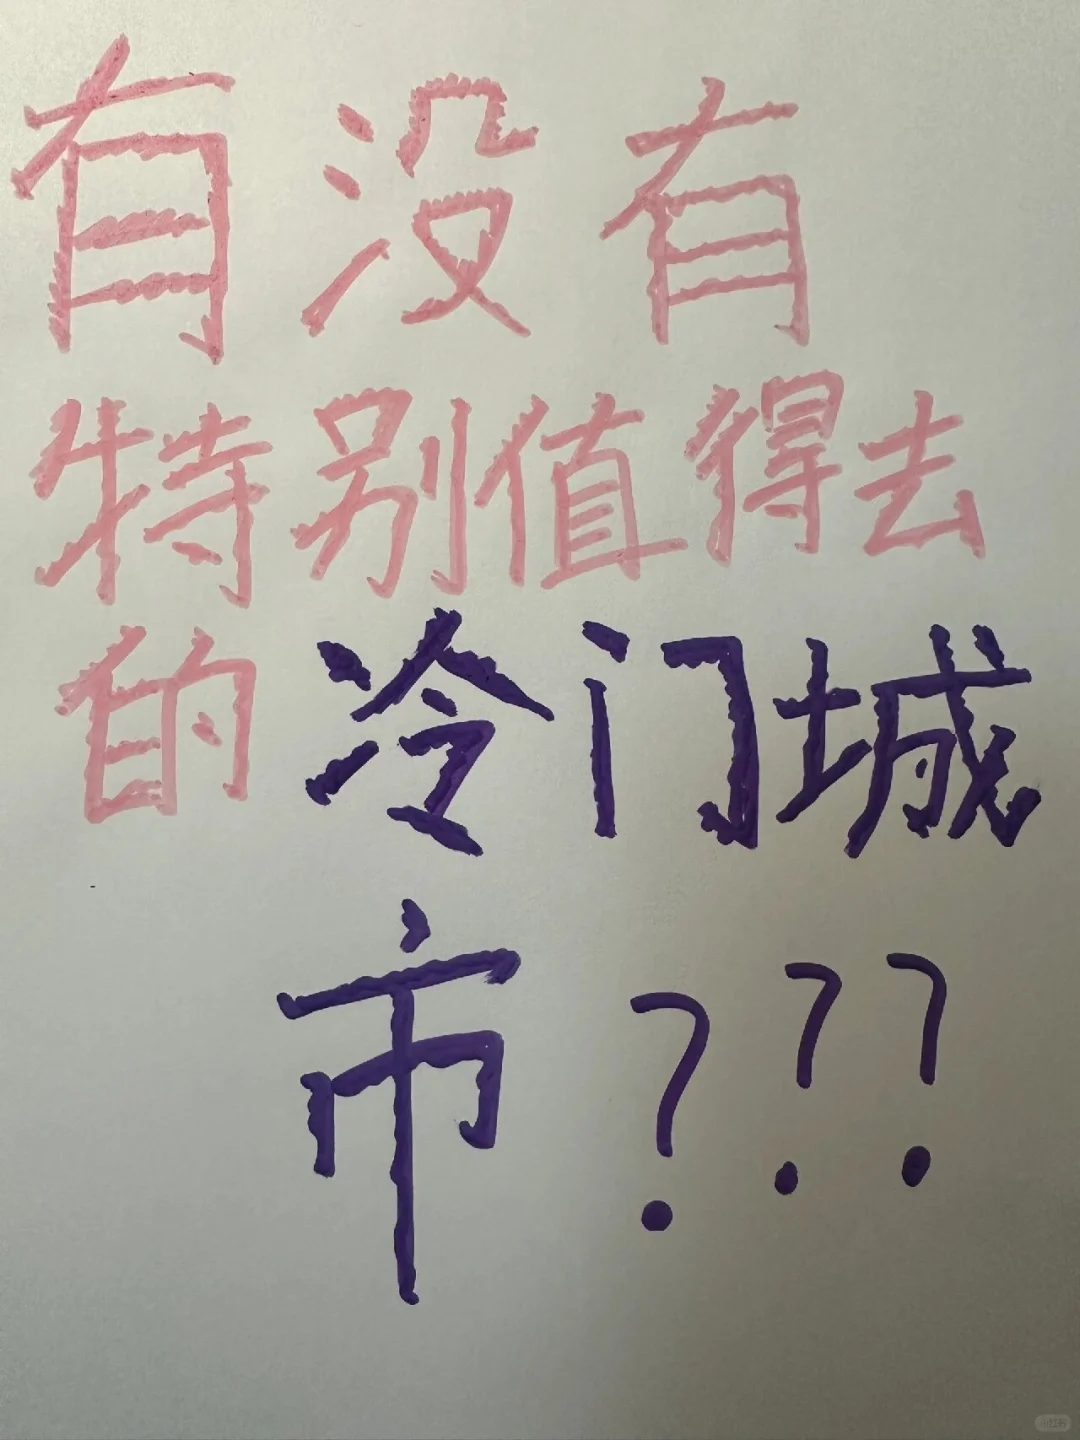 有没有
特别值得去
的冷门城
市???
小红书